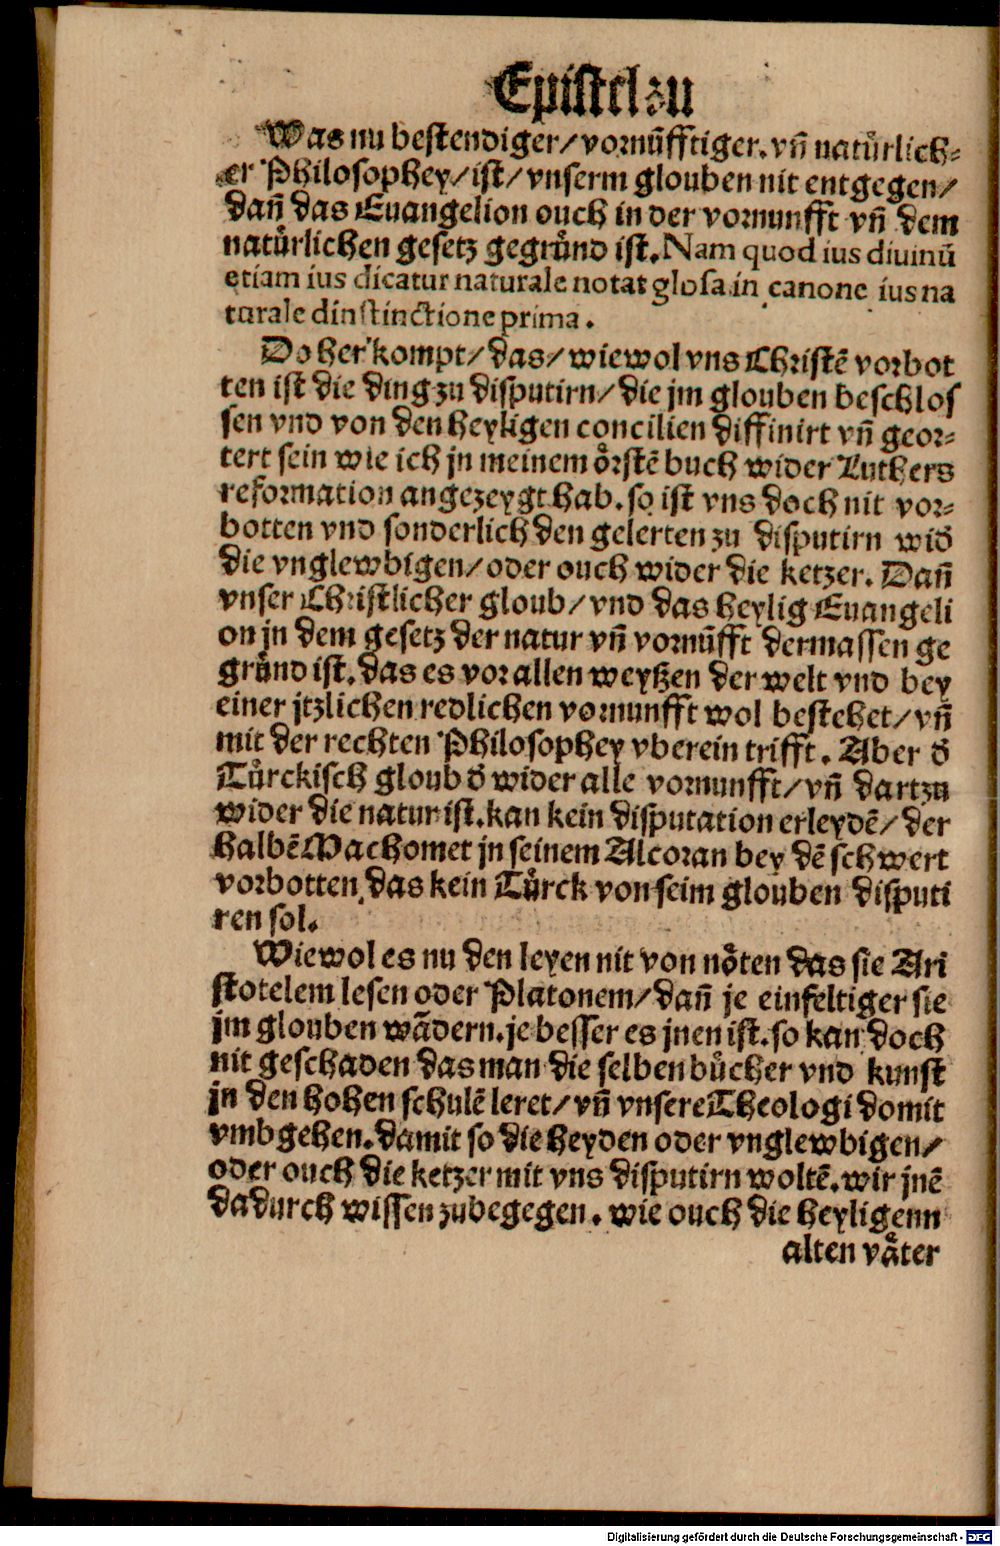 Epistel zu
Was nu bestendiger/ vornũfftiger. vñ natůrlich⸗
er Philosophey/ ist/ vnserm glouben nit entgegen/
dañ das Euangelion ouch in der vornunfft vñ dem
natůrlichen gesetz gegrůnd ist. Nam quod ius diuinũ
etiam ius dicatur naturale notat glosa in canone ius na
turale dinstinctione prima.
Do her kompt/ das/ wiewol vns Christẽ vorbot
ten ist die ding zu disputirn/ die jm glouben beschlos
sen vnd von den heyligen concilien diffinirt vñ geor⸗
tert sein wie ich jn meinem oͤrstẽ buch wider Luthers
reformation angezeygt hab. so ist vns doch nit vor⸗
botten vnd sonderlich den gelerten zu disputirn wid̕
die vnglewbigen/ oder ouch wider die ketzer. Dañ
vnser Christlicher gloub/ vnd das heylig Euangeli
on jn dem gesetz der natur vñ vornũfft dermassen ge
grůnd ist. das es vor allen weytzen der welt vnd bey
einer jtzlichen redlichen vornunfft wol bestehet/ vñ
mit der rechten Philosophey vberein trifft. Aber d̕
Tůrckisch gloub d̕ wider alle vornunfft/ vñ dartzu
wider die natur ist. kan kein disputation erleydẽ/ der
halbẽ Machomet jn seinem Alcoran bey dẽ schwert
vorbotten das kein Tůrck von seim glouben disputi
ren sol.
Wiewol es nu den leyen nit von noͤten das sie Ari
stotelem lesen oder Platonem/ dañ je einfeltiger sie
jm glouben wãdern. je besser es jnen ist. so kan doch
nit geschaden das man die selben bůcher vnd kunst
jn den hohen schulẽ leret/ vñ vnsere Theologi domit
vmbgehen. damit so die heyden oder vnglewbigen/
oder ouch die ketzer mit vns disputirn woltẽ. wir jnẽ
dadurch wissen zubegegen. wie ouch die heyligenn
alten våter
Digitalisierung gefördert durch die Deutsche Forschungsgemeinschaft - DFG